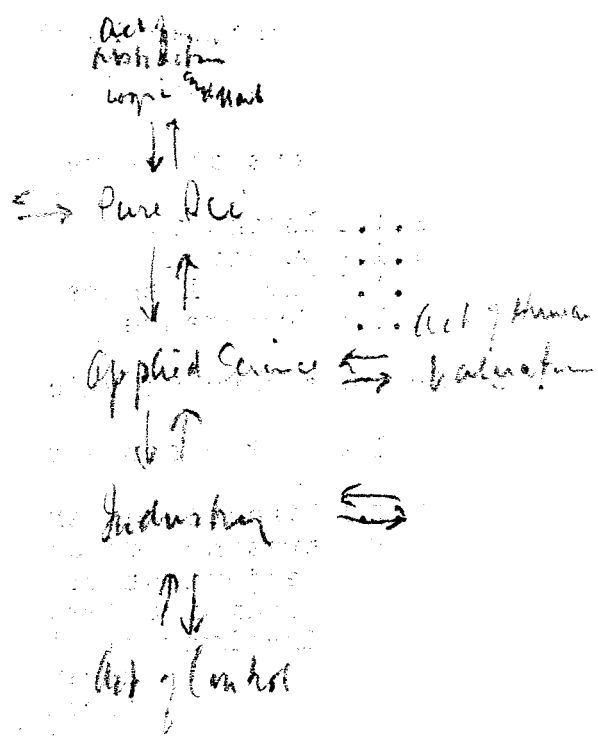 Act of
Abstraction
Logic
Pure Sci
Act of Human
Applied Science
Valuation
Industry
Act of Control